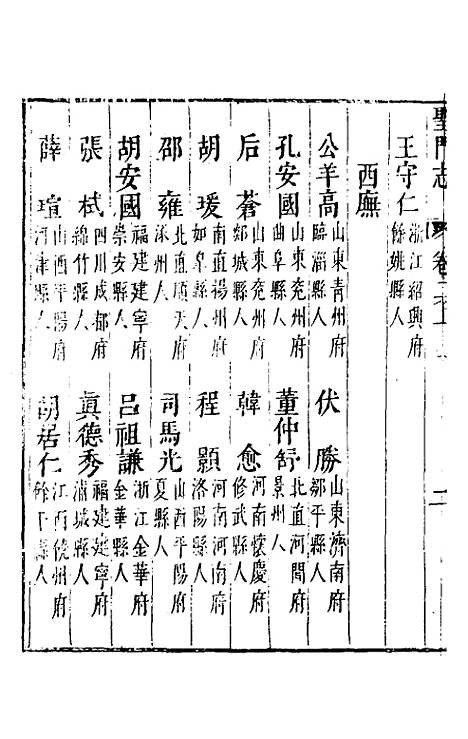 聖門志 卷二上
王守仁 浙江紹興府餘姚縣人
西廡
公羊高 山東青州府臨淄縣人 伏勝 山東濟南府鄒平縣人
孔安國 山東兗州府曲阜縣人 董仲舒 北直河間府景州人
后蒼 山東兗州府郯城縣人 韓愈 河南懷慶府修武縣人
胡瑗 南直揚州府如皋縣人 程顥 河南河南府洛陽縣人
邵雍 北直順天府涿州人 司馬光 山西平陽府夏縣人
胡安國 福建建寧府崇安縣人 呂祖謙 浙江金華府金華縣人
張栻 四川成都府綿竹縣人 眞德秀 福建建寧府浦城縣人
薛瑄 山西平陽府河津縣人 胡居仁 江西饒州府餘干縣人